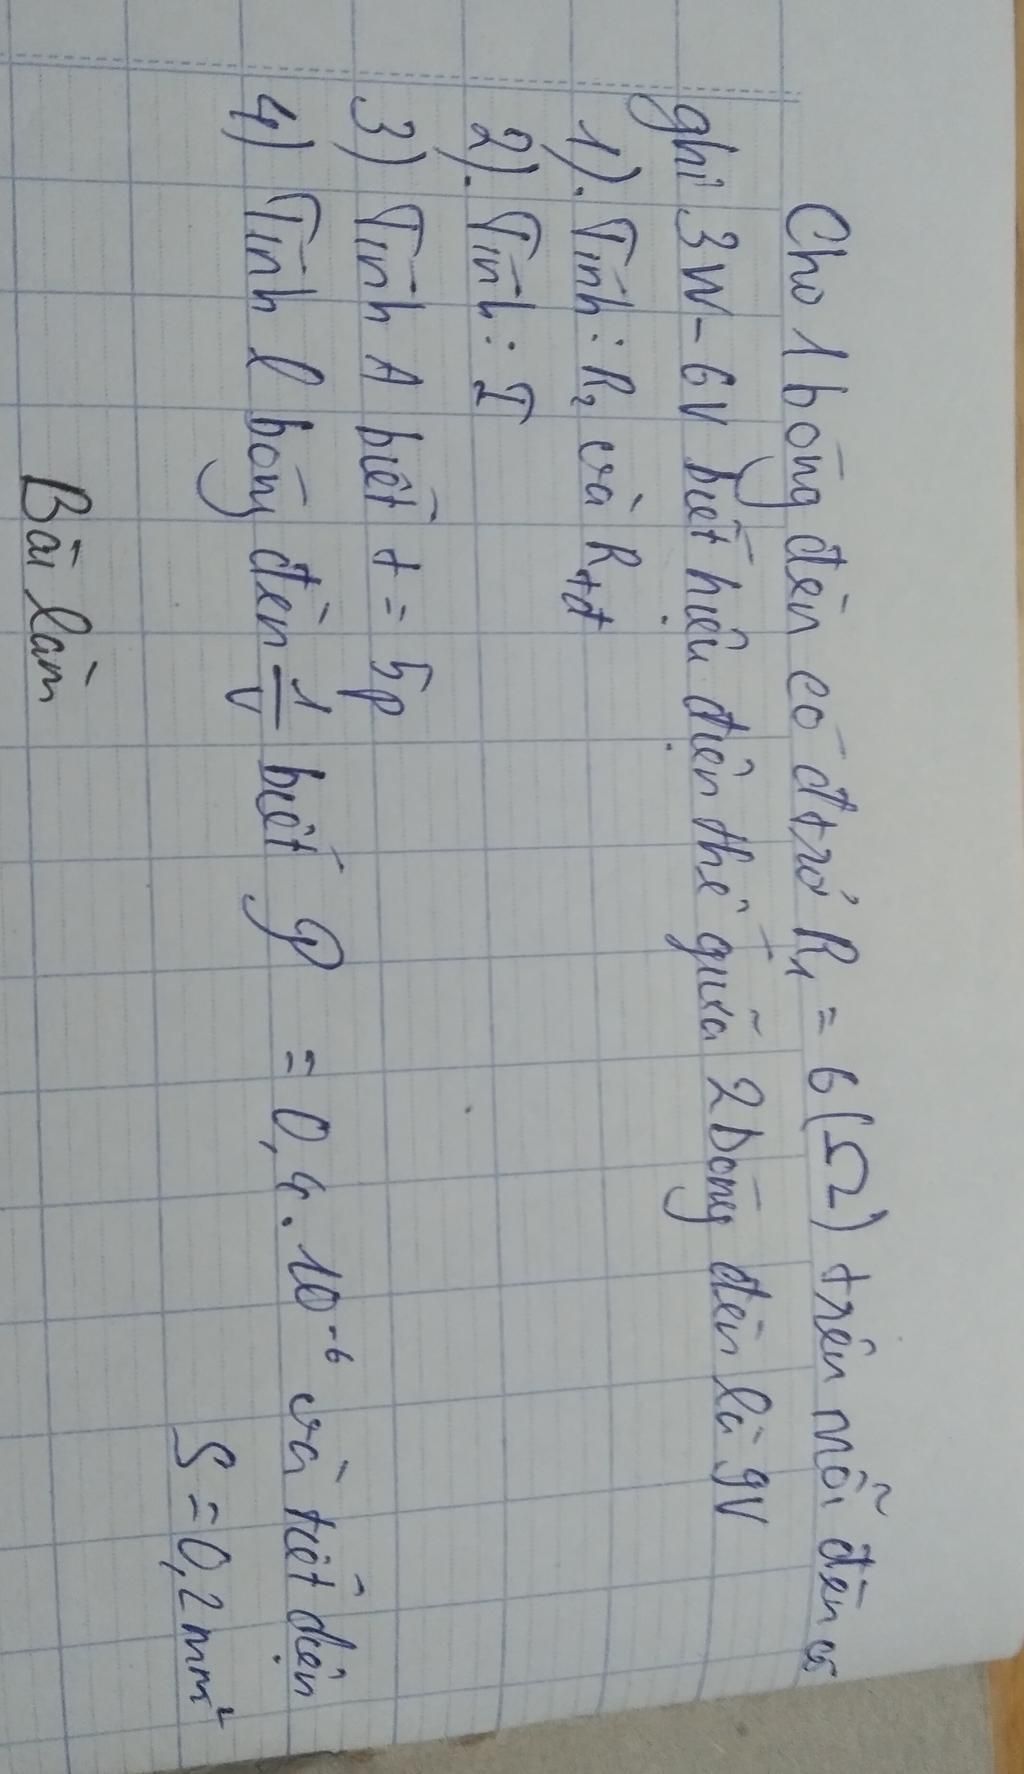 Cho 1 bóng đèn có đtrở R₁ = 6 (Ω) trên mỗi đèn có
ghi 3W - 6V biết hiệu điện thế giữa 2 bóng đèn là 9V
1). Tính : R₂ và Rtđ
2). Tính : I
3) Tính A biết t = 5p
4) Tính l bóng đèn 1 biết ρ = 0,4 . 10⁻⁶ và tiết diện
S = 0,2 mm²
Bài làm